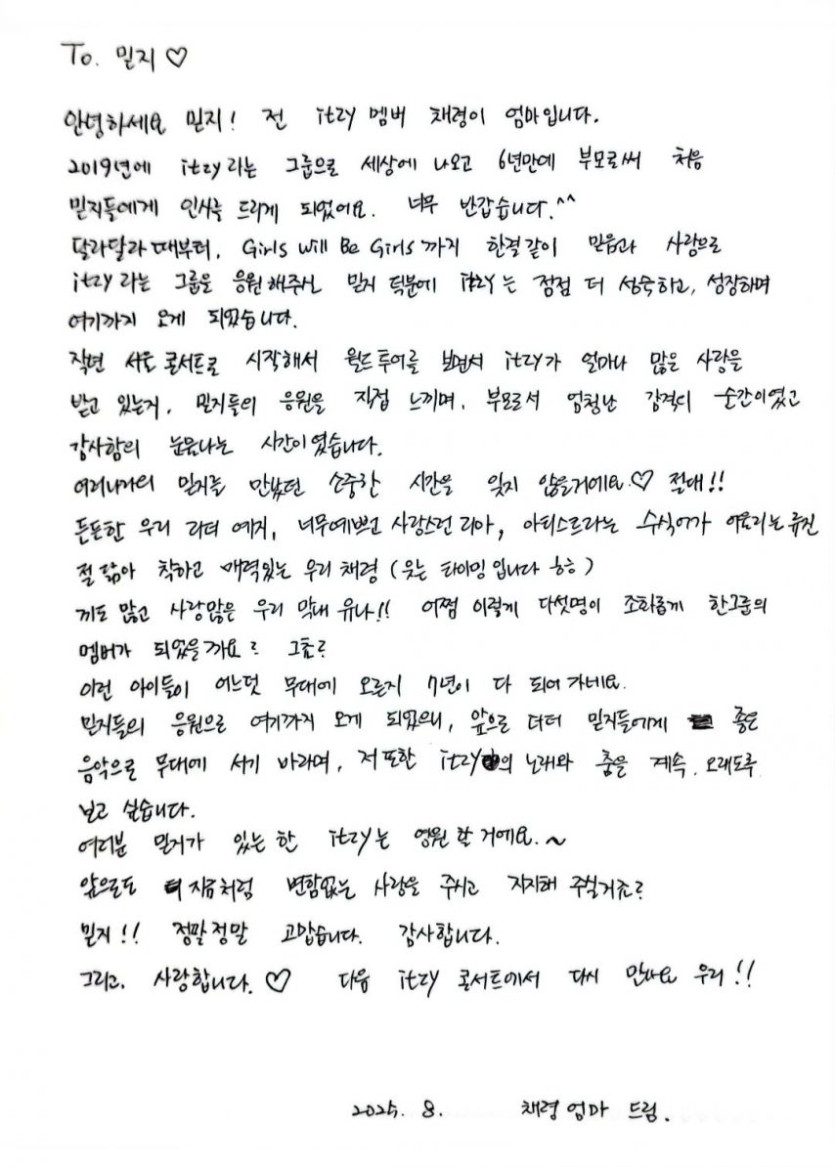 To. 믿지♡
안녕하세요 믿지! 전 itzy 멤버 채령이 엄마입니다.
2019년에 itzy라는 그룹으로 세상에 나오고 6년만에 부모로써 처음
믿지들에게 인사를 드리게 되었어요. 너무 반갑습니다.^^
달라달라 때부터, Girls Will Be Girls까지 한결같이 믿음과 사랑으로
itzy라는 그룹을 응원해주신 믿지 덕분에 itzy는 점점 더 성숙하고, 성장하며
여기까지 오게 되었습니다.
작년 서울 콘서트로 시작해서 월드투어를 보면서 itzy가 얼마나 많은 사랑을
받고 있는지, 믿지들의 응원을 직접 느끼며, 부모로서 엄청난 감격의 순간이였고
감사함의 눈물나는 시간이였습니다.
여러나라의 믿지를 만났던 소중한 시간을 잊지 않을거에요♡ 절대!!
든든한 우리 리더 예지, 너무예쁘고 사랑스런 리아, 아티스트라는 수식어가 어울리는 류진
절 닮아 착하고 매력있는 우리 채령 (웃는 타이밍입니다 ㅎㅎ)
끼도 많고 사랑많은 우리 막내 유나!! 어쩜 이렇게 다섯명이 조화롭게 한그룹의
멤버가 되었을까요? 그쵸?
이런 아이들이 어느덧 무대에 오른지 7년이 다 되어가네요.
믿지들의 응원으로 여기까지 오게 되었으니, 앞으로 더더 믿지들에게 좋은
음악으로 무대에 서기 바라며, 저 또한 itzy의 노래와 춤을 계속 오래도록
보고 싶습니다.
여러분 믿지가 있는 한 itzy는 영원할 거에요.~
앞으로도 지금처럼 변함없는 사랑을 주시고 지지해 주실거죠?
믿지!! 정말정말 고맙습니다. 감사합니다.
그리고. 사랑합니다.♡ 다음 itzy 콘서트에서 다시 만나요 우리!!
2025. 8. 채령 엄마 드림.